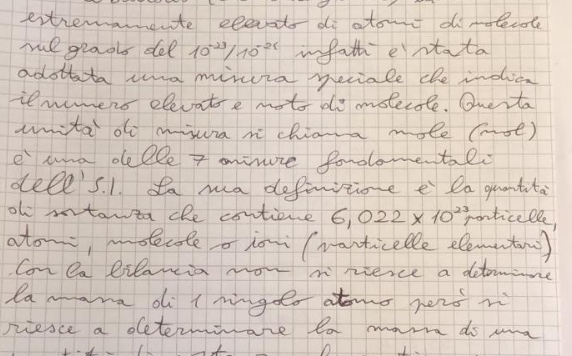 estremamente elevato di atomi di molecole
sul grado del 10⁻²³/10⁻²⁶ infatti e' stata
adottata una misura speciale che indica
il numero elevato e noto di molecole. Questa
unità di misura si chiama mole (mol)
è una delle 7 misure fondamentali
dell'S.I. La sua definizione è la quantità
di sostanza che contiene 6,022 x 10²³ particelle,
atomi, molecole o ioni (particelle elementari)
Con la bilancia non si riesce a determinare
la massa di 1 singolo atomo però si
riesce a determinare la massa di una